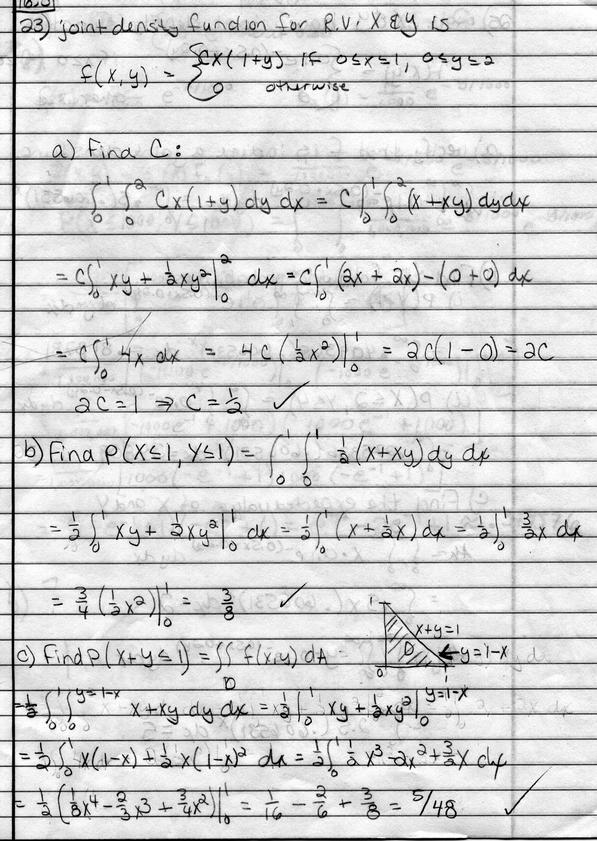 23) joint density function for R.V.: X & Y is
f(x,y) = { Cx(1+y) if 0≤x≤1, 0≤y≤2
0 otherwise
a) Find C:
∫₀¹ ∫₀² Cx(1+y) dy dx = C∫₀¹∫₀² (x+xy) dy dx
= C∫₀¹ xy + ½xy² |₀² dx = C∫₀¹ (2x + 2x) - (0+0) dx
= C∫₀¹ 4x dx = 4C (½x²)|₀¹ = 2C(1-0) = 2C
2C = 1 ⇒ C = ½ ✓
b) Find P(X≤1, Y≤1) = ∫₀¹ ∫₀¹ ½(x+xy) dy dx
= ½∫₀¹ xy + ½xy² |₀¹ dx = ½∫₀¹ (x + ½x) dx = ½∫₀¹ 3/2 x dx
= ¾ (½x²)|₀¹ = 3/8 ✓
1
x+y=1
D
y=1-x
0
1
c) Find P(X+Y≤1) = ∫∫_D f(x,y) dA =
= ½ ∫₀¹∫₀^{y=1-x} x+xy dy dx = ½∫₀¹ xy + ½xy² |₀^{y=1-x}
= ½∫₀¹ x(1-x) + ½x(1-x)² dx = ½∫₀¹ ½x³ - 2x² + 3/2 x dx
= ½ (⅛x⁴ - ⅔x³ + ¾x²)|₀¹ = 1/16 - 2/6 + 3/8 = 5/48 ✓